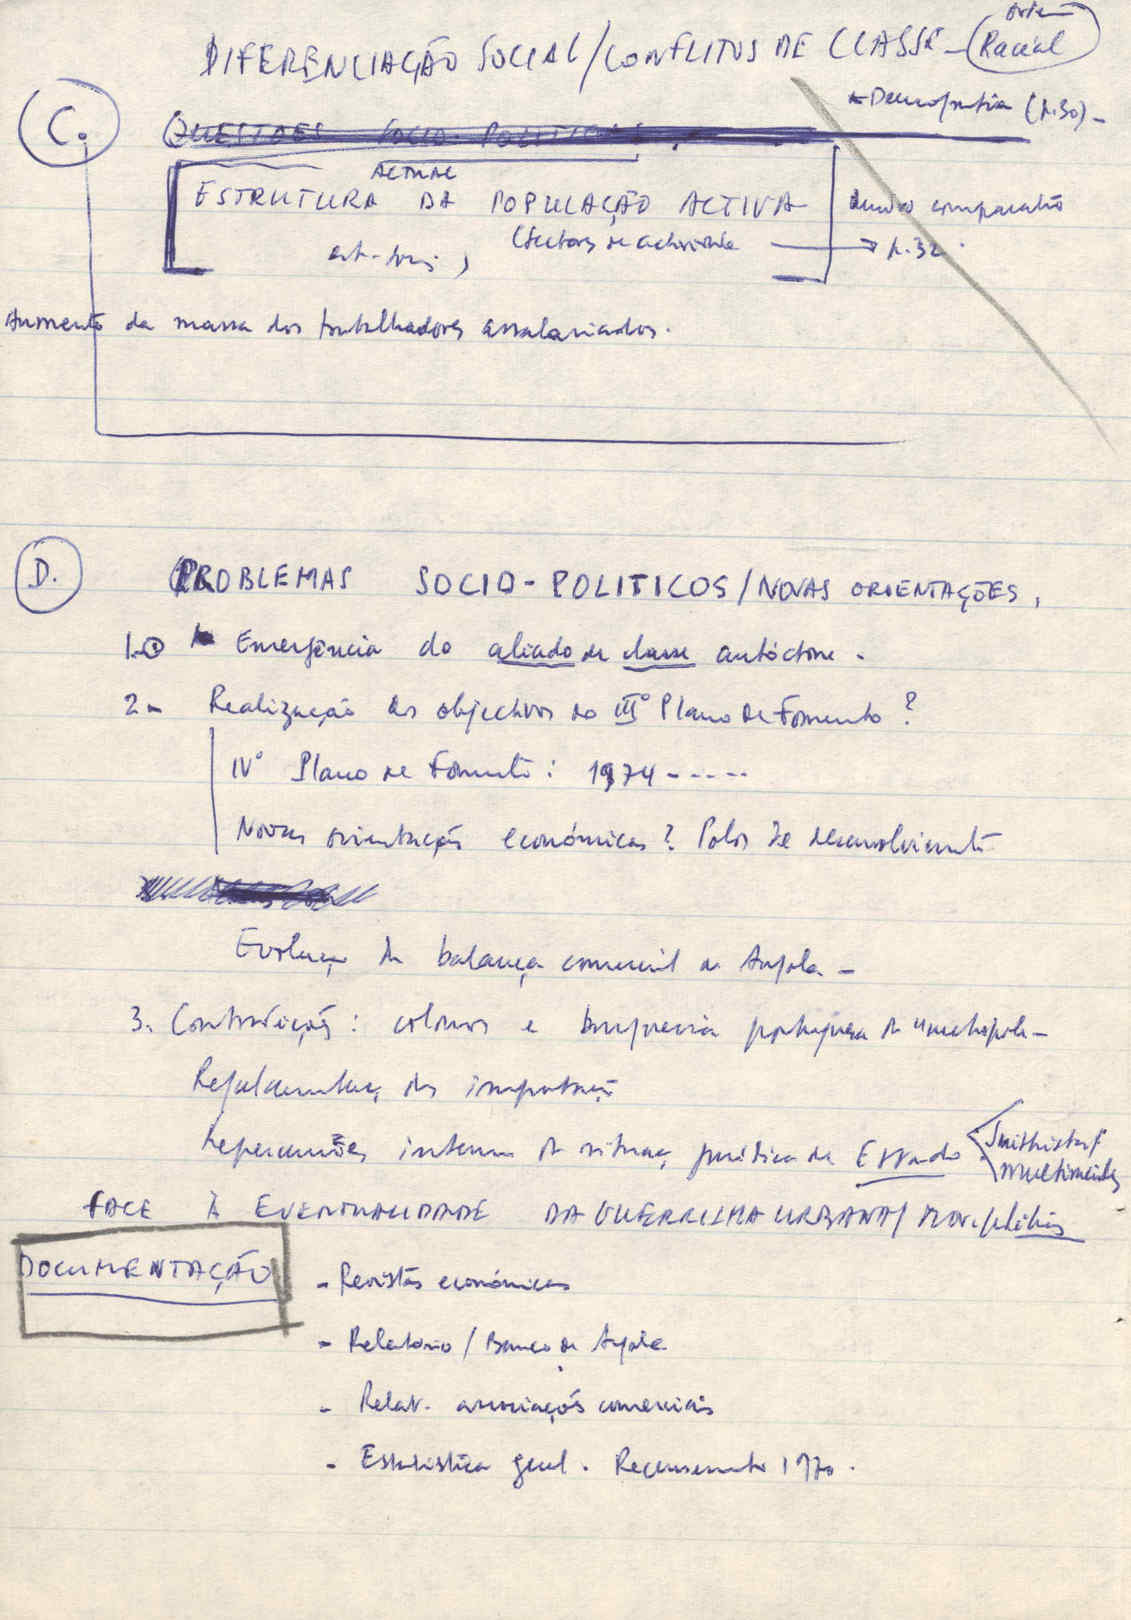 DIFERENCIAÇÃO SOCIAL/CONFLITOS DE CLASSE - Racial
- Demografia (p.30) -
C. QUESTÕES SOCIO-POLITICAS
ACTUAL
ESTRUTURA DA POPULAÇÃO ACTIVA
(sectores de actividade → p.32
Aumento da massa dos trabalhadores assalariados.
D. PROBLEMAS SOCIO-POLITICOS/NOVAS ORIENTAÇÕES,
1. Emergência do aliado de classe autóctone.
2- Realização dos objectivos do III° Plano de Fomento?
IV° Plano de Fomento: 1974-----
Novas orientações económicas? Polos de desenvolvimento
Evolução da balança comercial de Angola -
3. Contradições: colonos e burguesia portuguesa da "metropole -
Regulamentação das importações
Repercussões internas da situação jurídica de Estado
FACE À EVENTUALIDADE DA GUERRILHA URBANA/
DOCUMENTAÇÃO
- Revistas económicas
- Relatório / Banco de Angola
- Relat. associações comerciais
- Estatística geral. Recenseamento 1970.